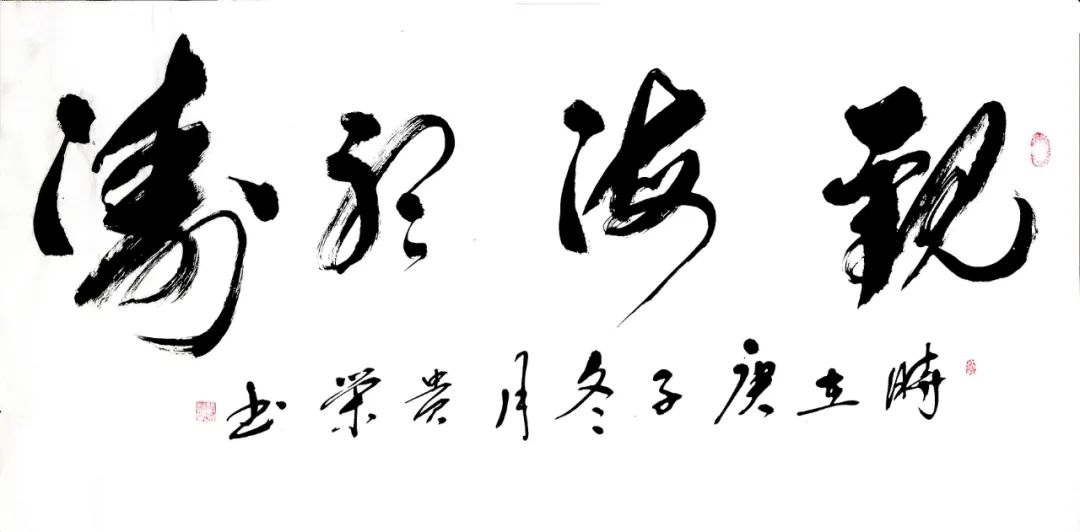 觀海聽濤
時在庚子冬月貴榮书